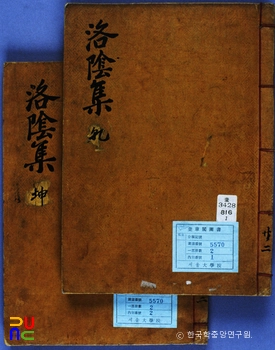 洛陰集
乾
奎
3428
816
1
奎章閣圖書
5570
2
1
서울大學校
共二
洛陰集
坤
5570
2
2
서울大學校
© 한국학중앙연구원.